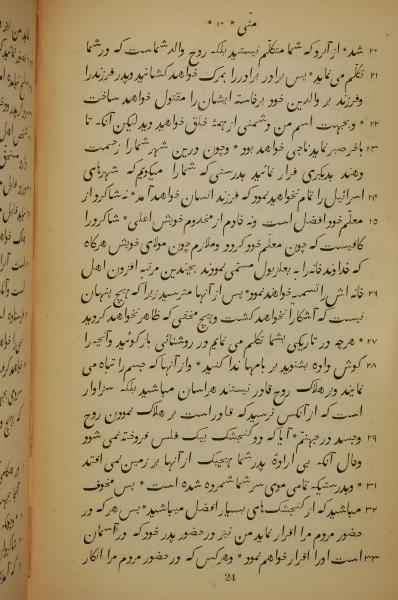 متی * ۱۰ *
۲۰ شد * از آنرو که شما متکلّم نیستید بلکه روح والد شماست که در شما
۲۱ تکلّم می نماید * پس برادر برادر را بمرگ خواهد کشانید و پدر فرزند را
و فرزند بر والدین خود برخاسته ایشان را مقتول خواهد ساخت
۲۲ * و بجهت اسم من دشمنی از همهٔ خلق خواهید دید لیکن آنکه تا
۲۳ بآخر صبر نماید ناجی خواهد بود * و چون در این شهر شما را زحمت
دهند بدیگری فرار نمائید بدرستی که شما را میگویم که شهرهای
۲۴ اسرائیل را تمام نخواهید نمود که فرزند انسان خواهد آمد * نه شاگرد از
۲۵ معلّم خود افضل است و نه خادم از مخدوم خویش اعلی * شاگرد را
کافیست که چون معلّم خود گردد و ملازم چون مولای خویش هرگاه
که خداوند خانه را به بعلزبول مسمّی نمودند بچندین مرتبه افزون اهل
۲۶ خانه اش را تسمیه خواهند نمود * پس از آنها مترسید زیرا که هیچ پنهان
نیست که آشکارا نخواهد گشت و هیچ مخفی که ظاهر نخواهد گردید
۲۷ * هرچه در تاریکی بشما تکلّم می نمایم در روشنائی باز گوئید و آنچه را
۲۸ گوش داده بشنوید بر بامها ندا کنید * و از آنها که جسم را تباه می
نمایند و بر هلاک روح قادر نیستند هراسان مباشید بلکه سزاوار
است که از آنکس ترسید که قادر است بر هلاک نمودن روح
۲۹ و جسد در جهنّم * آیا که دو کنجشک بیک فلس فروخته نمی شود
و حال آنکه بی ارادهٔ پدر شما هیچیک از آنها بر زمین نمی افتد
۳۱ * و بدرستیکه تمامی موی سر شما شمرده شده است * پس مخوف
۳۲ مباشید که از کنجشک های بسیار افضل میباشید * پس هر که در
حضور مردم مرا اقرار نماید من نیز در حضور پدر خود که در آسمان
۳۳ است او را اقرار خواهم نمود * و هرکس که در حضور مردم مرا انکار
24